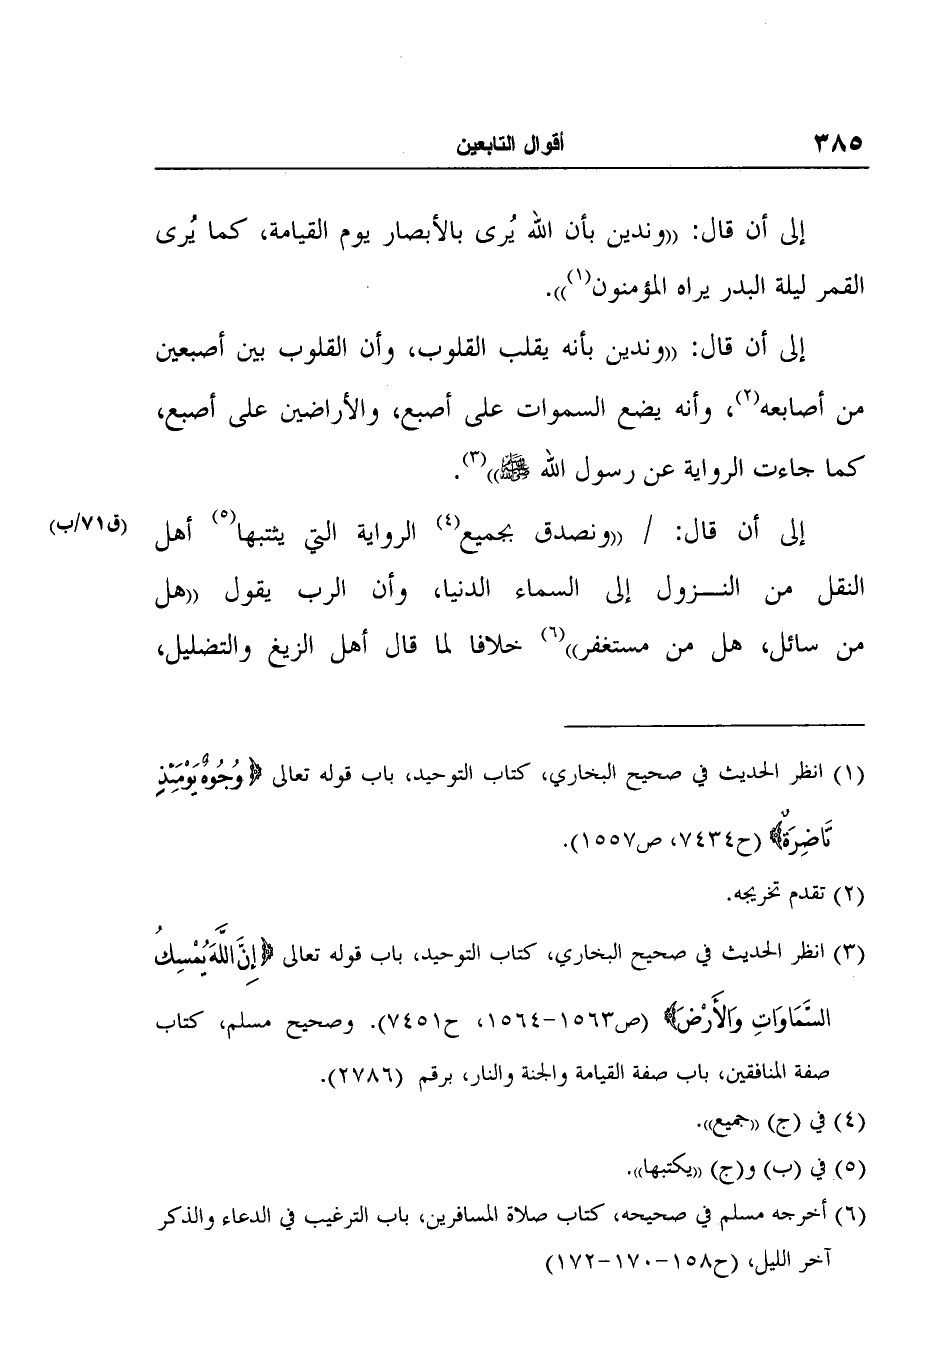 ٣٨٥ أقوال التابعين
إلى أن قال: ((وندين بأن الله يُرى بالأبصار يوم القيامة، كما يُرى
القمر ليلة البدر يراه المؤمنون(١))).
إلى أن قال: ((وندين بأنه يقلب القلوب، وأن القلوب بين أصبعين
من أصابعه(٢)، وأنه يضع السموات على أصبع، والأراضين على أصبع،
كما جاءت الرواية عن رسول الله ﷺ))(٣).
إلى أن قال: / ((ونصدق بجميع(٤) الرواية التي يثتبها(٥) أهل (ق٧١/ب)
النقل من النــزول إلى السماء الدنيا، وأن الرب يقول ((هل
من سائل، هل من مستغفر))(٦) خلافا لما قال أهل الزيغ والتضليل،
(١) انظر الحديث في صحيح البخاري، كتاب التوحيد، باب قوله تعالى ﴿وُجُوهٌ يَوْمَئِذٍ
نَّاضِرَةٌ﴾ (ح٧٤٣٤، ص١٥٥٧).
(٢) تقدم تخريجه.
(٣) انظر الحديث في صحيح البخاري، كتاب التوحيد، باب قوله تعالى ﴿إِنَّ اللَّهَ يُمْسِكُ
السَّمَاوَاتِ وَالْأَرْضَ﴾ (ص١٥٦٣-١٥٦٤، ح٧٤٥١). وصحيح مسلم، كتاب
صفة المنافقين، باب صفة القيامة والجنة والنار، برقم (٢٧٨٦).
(٤) في (ج) ((جميع)).
(٥) في (ب) و(ج) ((يكتبها)).
(٦) أخرجه مسلم في صحيحه، كتاب صلاة المسافرين، باب الترغيب في الدعاء والذكر
آخر الليل، (ح١٥٨-١٧٠-١٧٢)